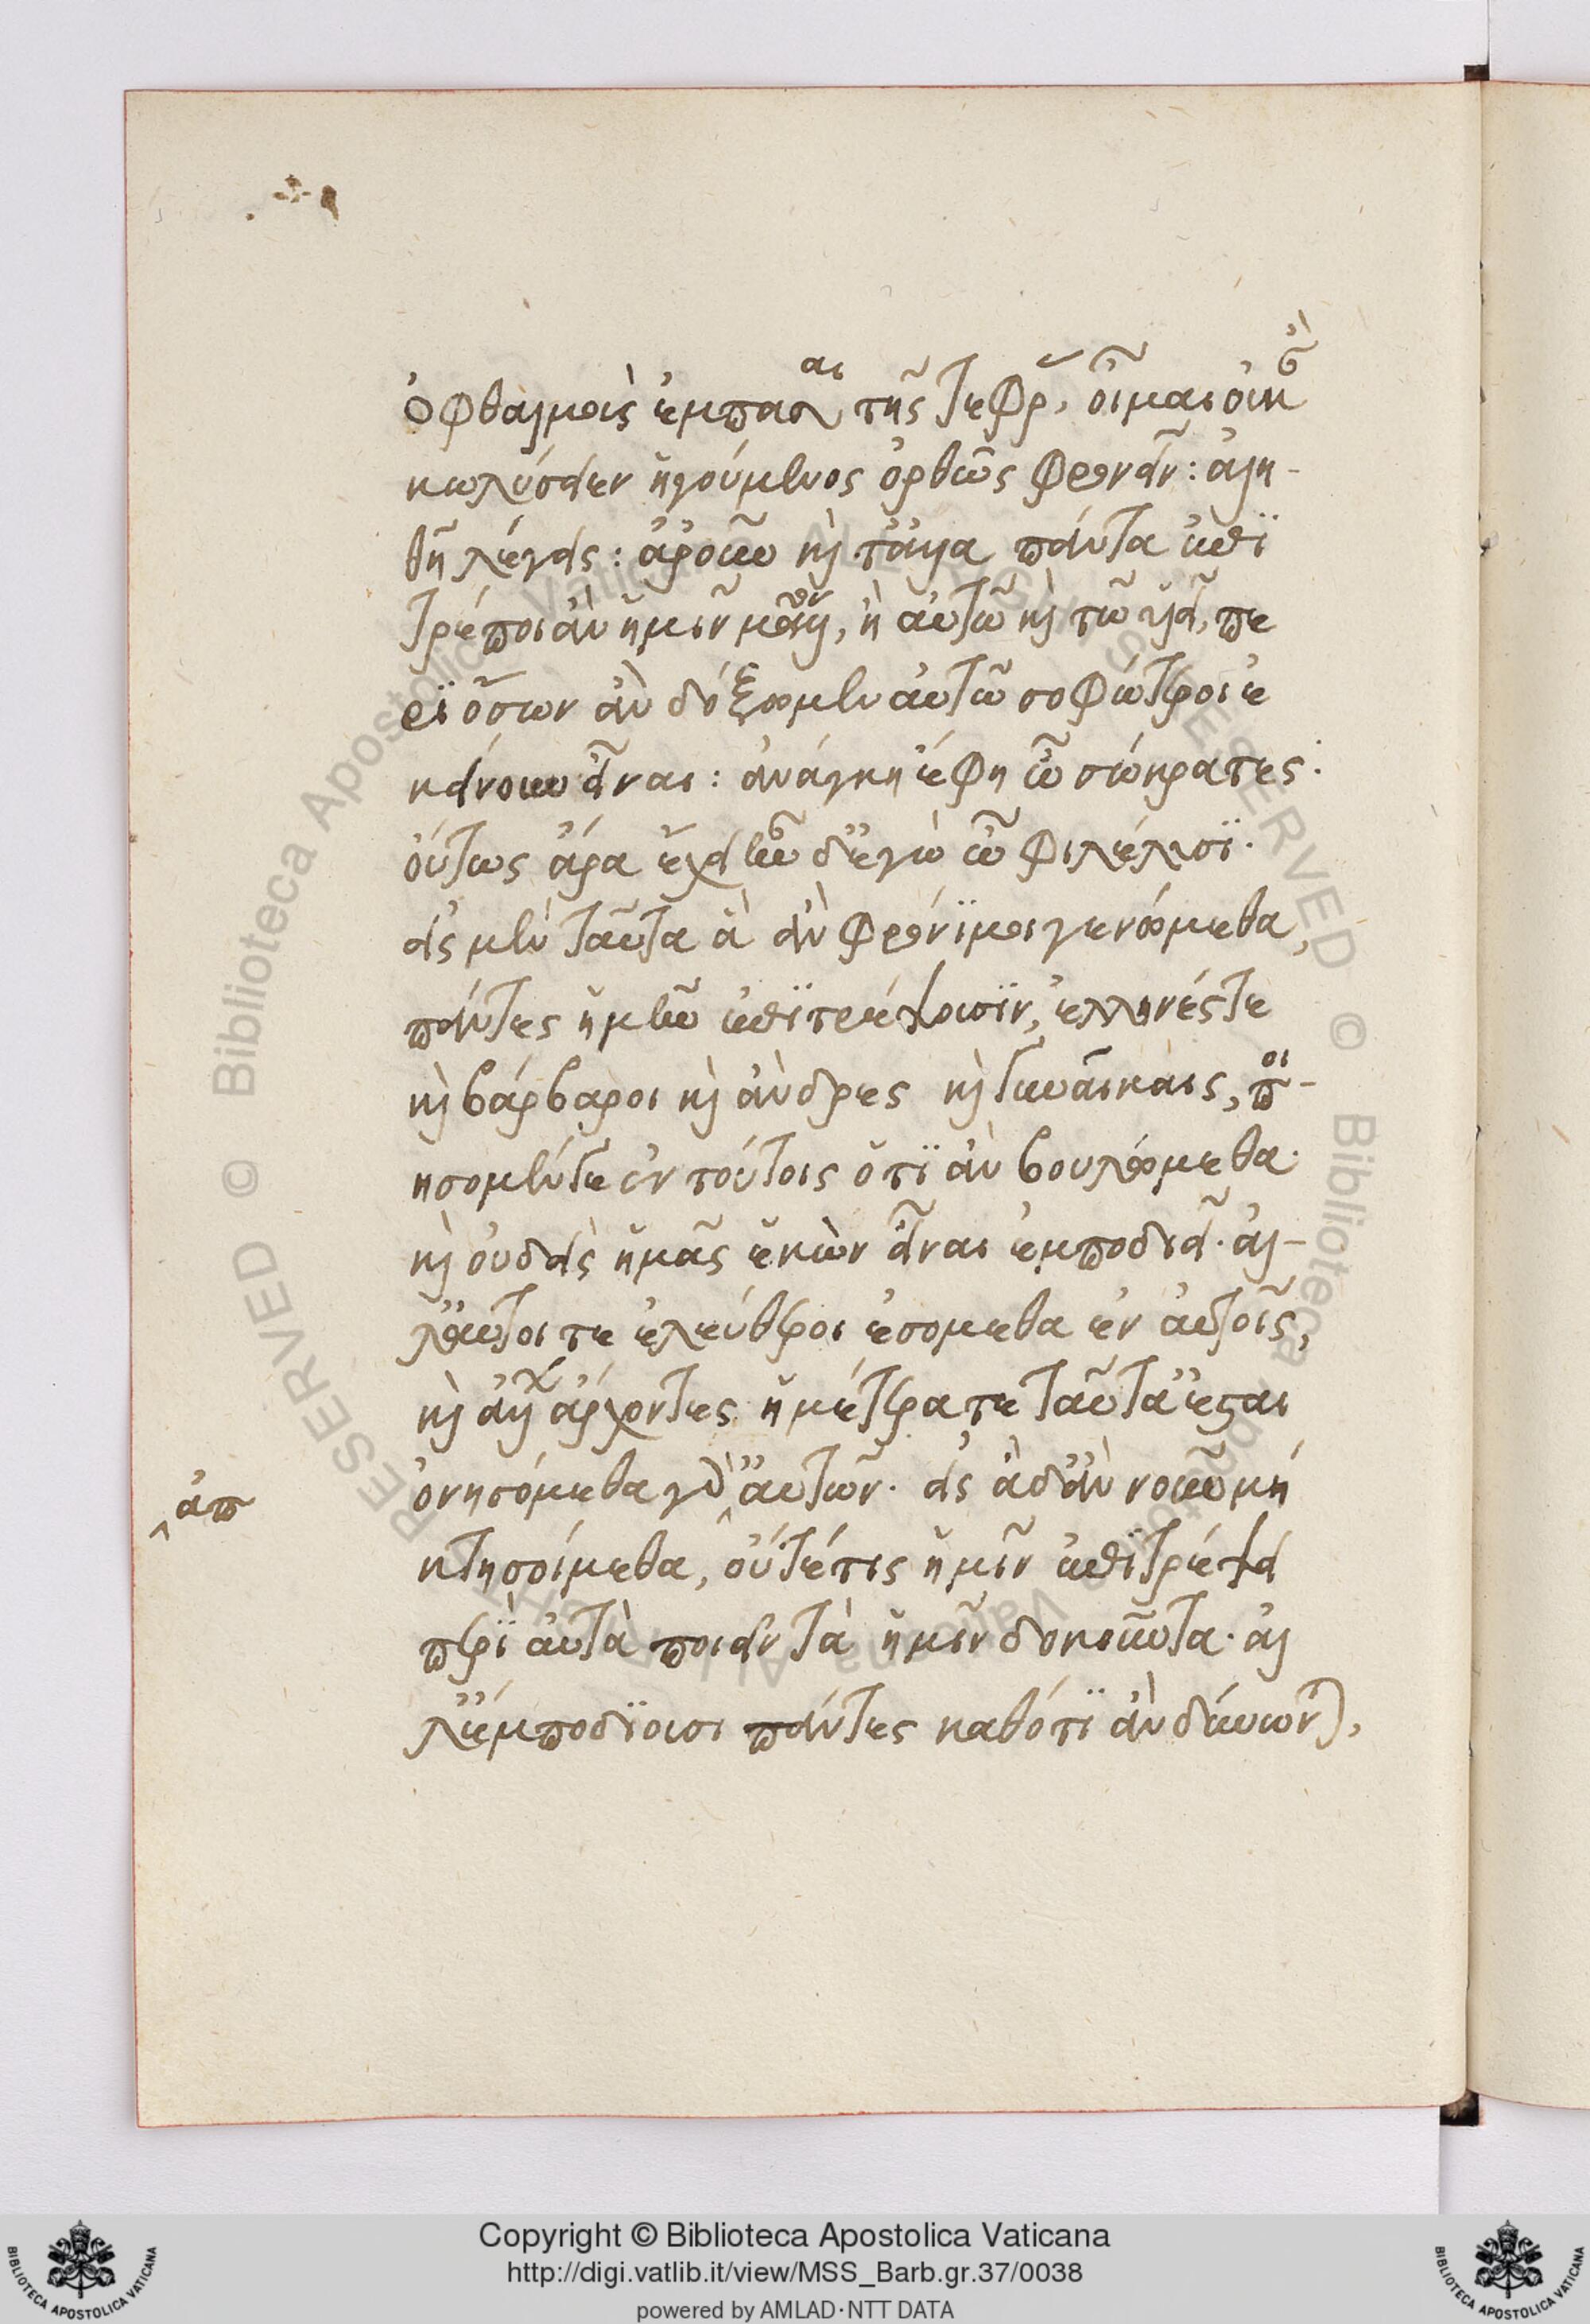 ὀφθαλμοὺς ἐμπάσαι τῆς τέφρας, οἶμαι οὐκ ἂν
κωλύσειεν ἡγούμενος ὀρθῶς φρονεῖν: ἀλη-
θῆ λέγεις: ἆρ' οὖν καὶ τἄλλα πάντα ἐπι
τρέποι ἂν ἡμῖν μᾶλλον, ἢ αὐτῷ καὶ τῷ υἱεῖ, πε
ρὶ ὅσων ἂν δόξωμεν αὐτῷ σοφώτεροι ἐ
κείνου εἶναι: ἀνάγκη ἔφη ὦ σώκρατες:
οὕτως ἄρα ἔχει ἦν δ' ἐγὼ ὦ φίλε λύσι·
εἰς μὲν ταῦτα ἃ ἂν φρόνιμοι γενώμεθα,
πάντες ἡμῖν ἐπιτρέψουσιν, ἕλληνές τε
καὶ βάρβαροι καὶ ἄνδρες καὶ γυναῖκαις, ποι-
ήσομέν τε ἐν τούτοις ὅτι ἂν βουλώμεθα·
καὶ οὐδεὶς ἡμᾶς ἑκὼν εἶναι ἐμποδιεῖ· ἀλ-
λ' αὐτοί τε ἐλεύθεροι ἐσόμεθα ἐν αὐτοῖς,
καὶ ἄλλων ἄρχοντες ἡμέτερά τε ταῦτα ἔσται
ὀνησόμεθα γὰρ ἀπ' αὐτῶν· εἰς ἃ δ' ἂν νοῦν μὴ
κτησοίμεθα, οὔτέ τις ἡμῖν ἐπιτρέψει
περὶ αὐτὰ ποιεῖν τὰ ἡμῖν δοκοῦντα· ἀλ
λ' ἐμποδιοῦσι πάντες καθότι ἂν δύνωνται,
ἀπ
Copyright © Biblioteca Apostolica Vaticana
http://digi.vatlib.it/view/MSS_Barb.gr.37/0038
powered by AMLAD·NTT DATA